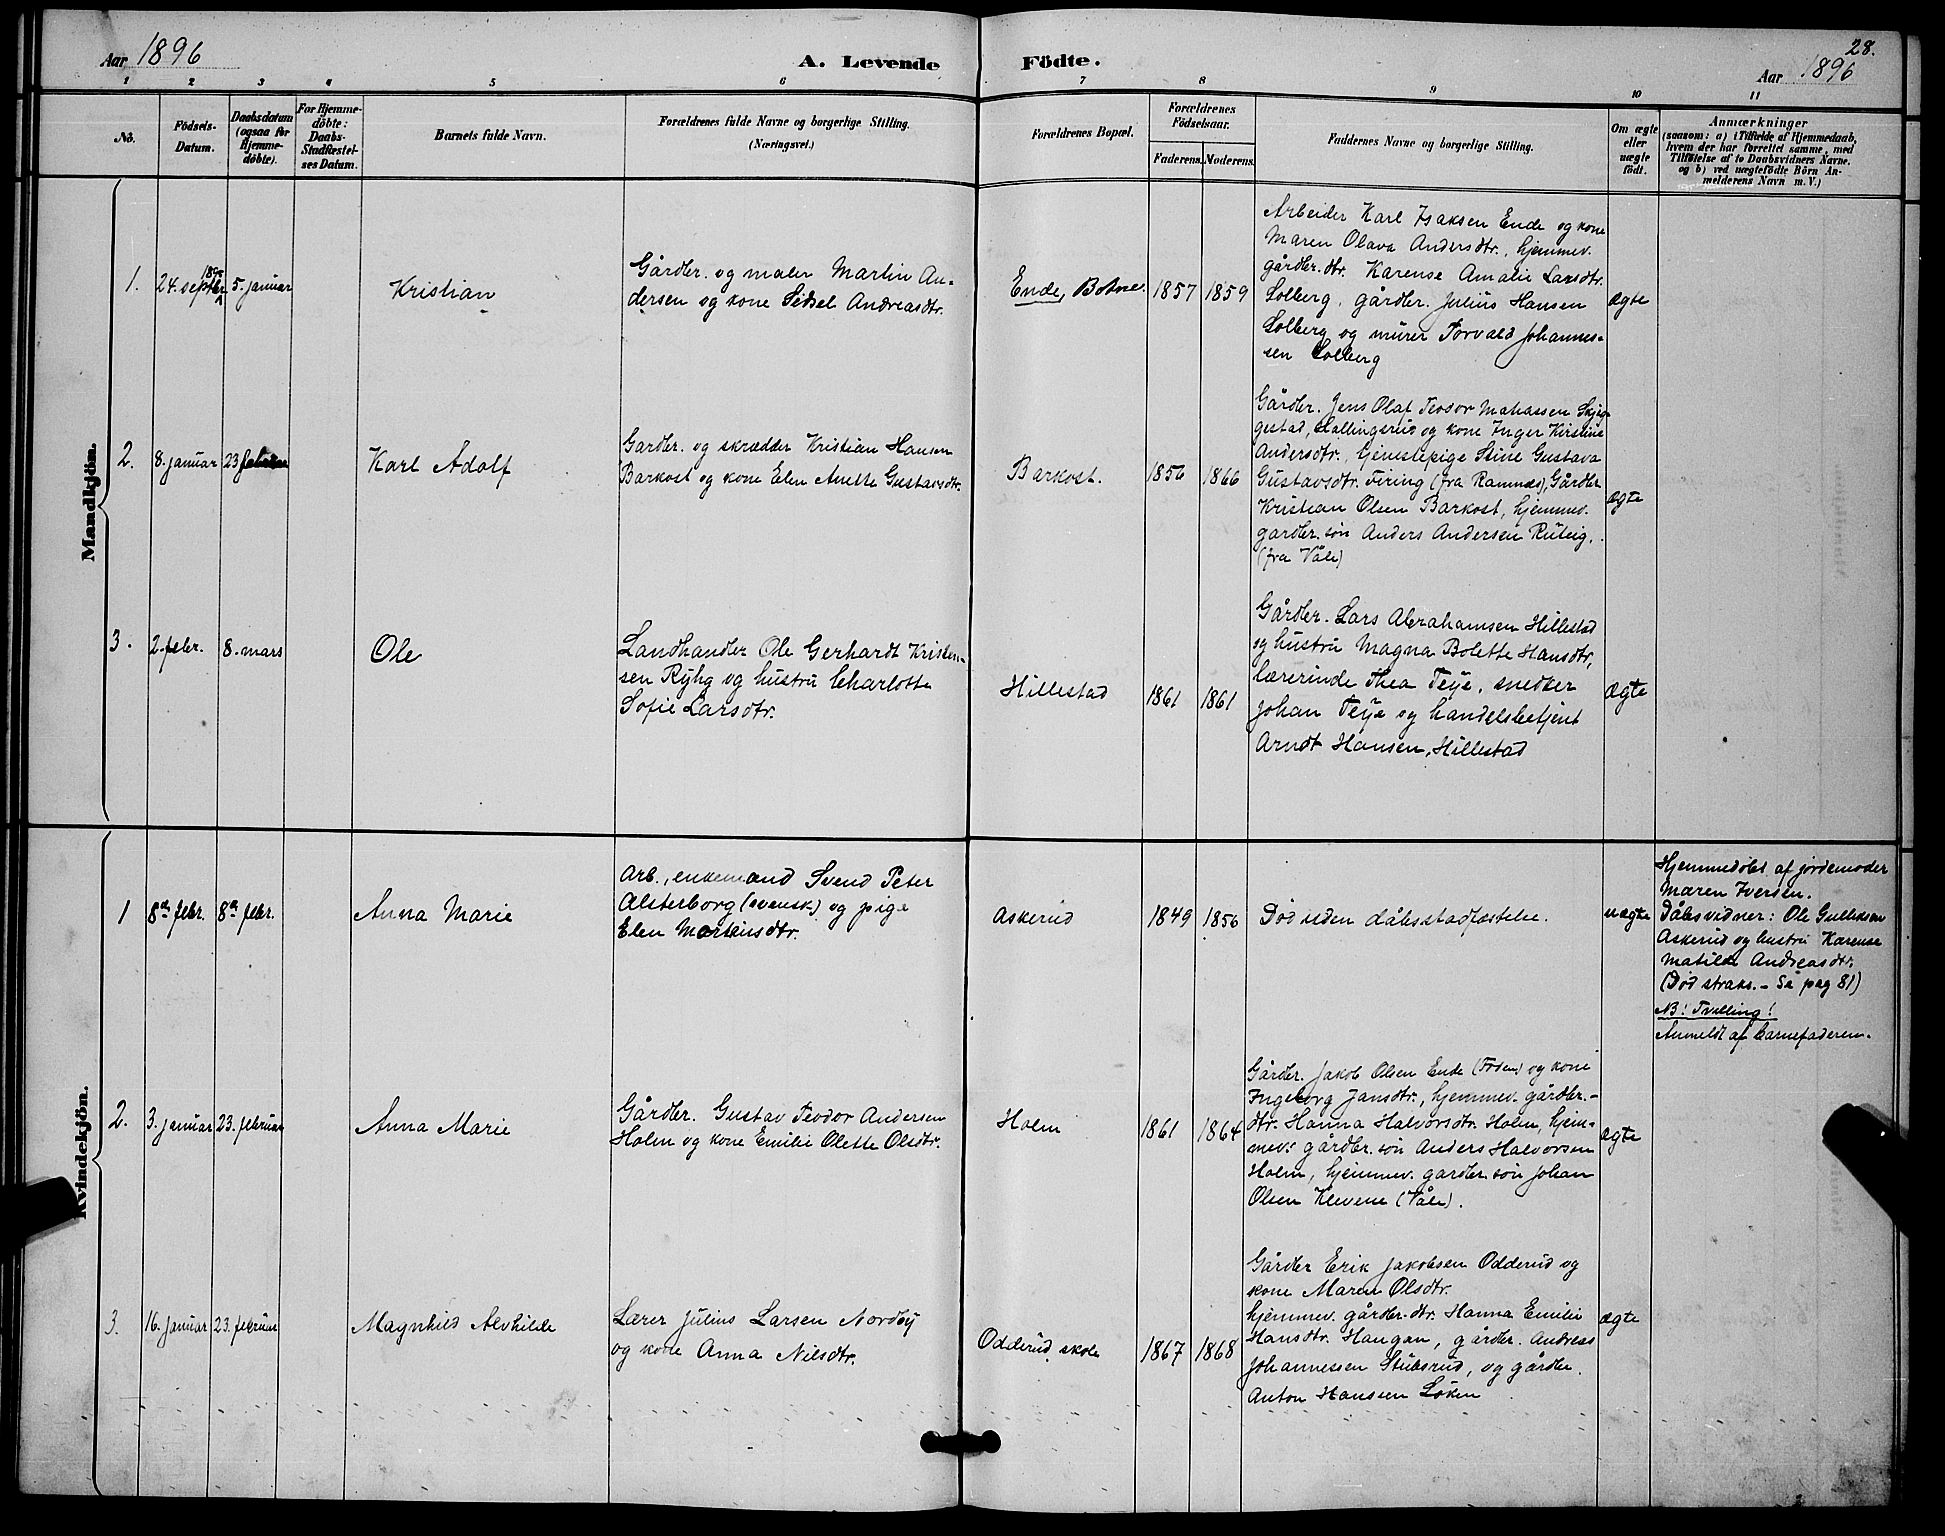 Aar 1896
A. Levende
Födte.
28.
Aar 1896
1 2 3 4 5 6 7 8 9 10 11
No.
Födsels-
Datum.
Daabsdatum
(ogsaa for
Hjemme-
döbte).
For Hjemme-
döbte:
Daabs-
Stadfæstel-
ses Datum.
Barnets fulde Navn.
Forældrenes fulde Navne og borgerlige Stilling.
(Næringsvei.)
Forældrenes Bopæl.
Forældrenes
Födselsaar.
Faderens. Moderens.
Faddernes Navne og borgerlige Stilling.
Om ægte
eller
uægte
födt.
Anmærkninger
(saasom: a) i Tilfælde af Hjemmedaab,
hvem der har forrettet samme, med
Tilföielse af to Daabsvidners Navne.
og b) ved uægtefödte Börn An-
melderens Navn m. V.)
Mandkjön.
1.
24. septbr. 1895
5. januar
Kristian
Gårdbr. og maler Martin An-
dersen og kone Sidsel Andreasdtr.
Ende, Botne.
1857
1859
Arbeider Karl Isaksen Ende og kone
Maren Olava Andersdtr., hjemmev.
gårdbr. dtr. Karense Amalie Larsdtr.
Solberg, gårdbr. Julius Hansen
Solberg og murer Torvald Johannes-
sen Solberg
ægte
2.
8. januar
23 februar
Karl Adolf
Gardbr. og skrædder Kristian Hansen
Barkost og kone Elen Anette Gustavsdtr.
Barkost.
1856
1866
Gårdbr. Jens Olaf Teodor Mathassen Skjeg-
gestad, Hallingerud og kone Inger Kirstine
Andersdtr., tjenestepige Stine Gustava
Gustavsdtr. Firing (fra Ramnæs), Gårdbr
Kristian Olsen Barkost, hjemmev.
gardbr. søn Anders Andersen Rueig,
(fra Våle)
ægte
3.
2. febr.
8. mars
Ole
Landhandler Ole Gerhardt Kristen-
sen Ryhg og hustru Charlotte
Sofie Larsdtr.
Hillestad
1861
1861
Gårdbr. Lars Abrahamsen Hillestad
og hustru Magna Bolette Hansdtr,
lærerinde Thea Teye, snedker
Johan Teye og handelsbetjent
Arndt Hansen, Hillestad
ægte
Kvindekjön.
1
8de febr.
8de febr.
Anna Marie
Arb., enkemand Svend Peter
Alsterborg (svensk) og pige
Elen Martinsdtr.
Askerud
1849
1856
Død uden dåbsstadfæstelse.
uægte
Hjemmedøbt af jordemoder
Maren Iversen.
Dåbsvidner: Ole Gulliksen
Askerud og hustru Karense
Matilde Andreasdtr.
(Død straks. - Se pag 81)
NB! Tvilling!
Anmeldt af barnefaderen.
2.
3. januar
23. februar
Anna Marie
Gårdbr. Gustav Teodor Andersen
Holm og kone Emilie Olette Olsdtr.
Holm
1861
1864
Gårdbr. Jakob Olsen Ende (Foden) og kone
Ingeborg Jansdtr., hjemmev. gårdbr.-
dtr. Hanna Halvorsdtr. Holm, hjem-
mev. gårdbr. søn Anders Halvorsen
Holm, hjemmev. gardbr. søn Johan
Olsen Klevene (Våle).
ægte
3.
16. januar
23. februar
Magnhild Alvhilde
Lærer Julius Larsen Nordby
og kone Anna Nilsdtr.
Odderud skole
1867
1868
Gårdbr Erik Jakobsen Odderud og
kone Maren Olsdtr.
hjemmev. gårdbr. dtr. Hanna Emilie
Hansdtr. Haugan, gårdbr. Andreas
Johannessen Stubsrud, og gårdbr.
Anton Hanssen Løken
ægte